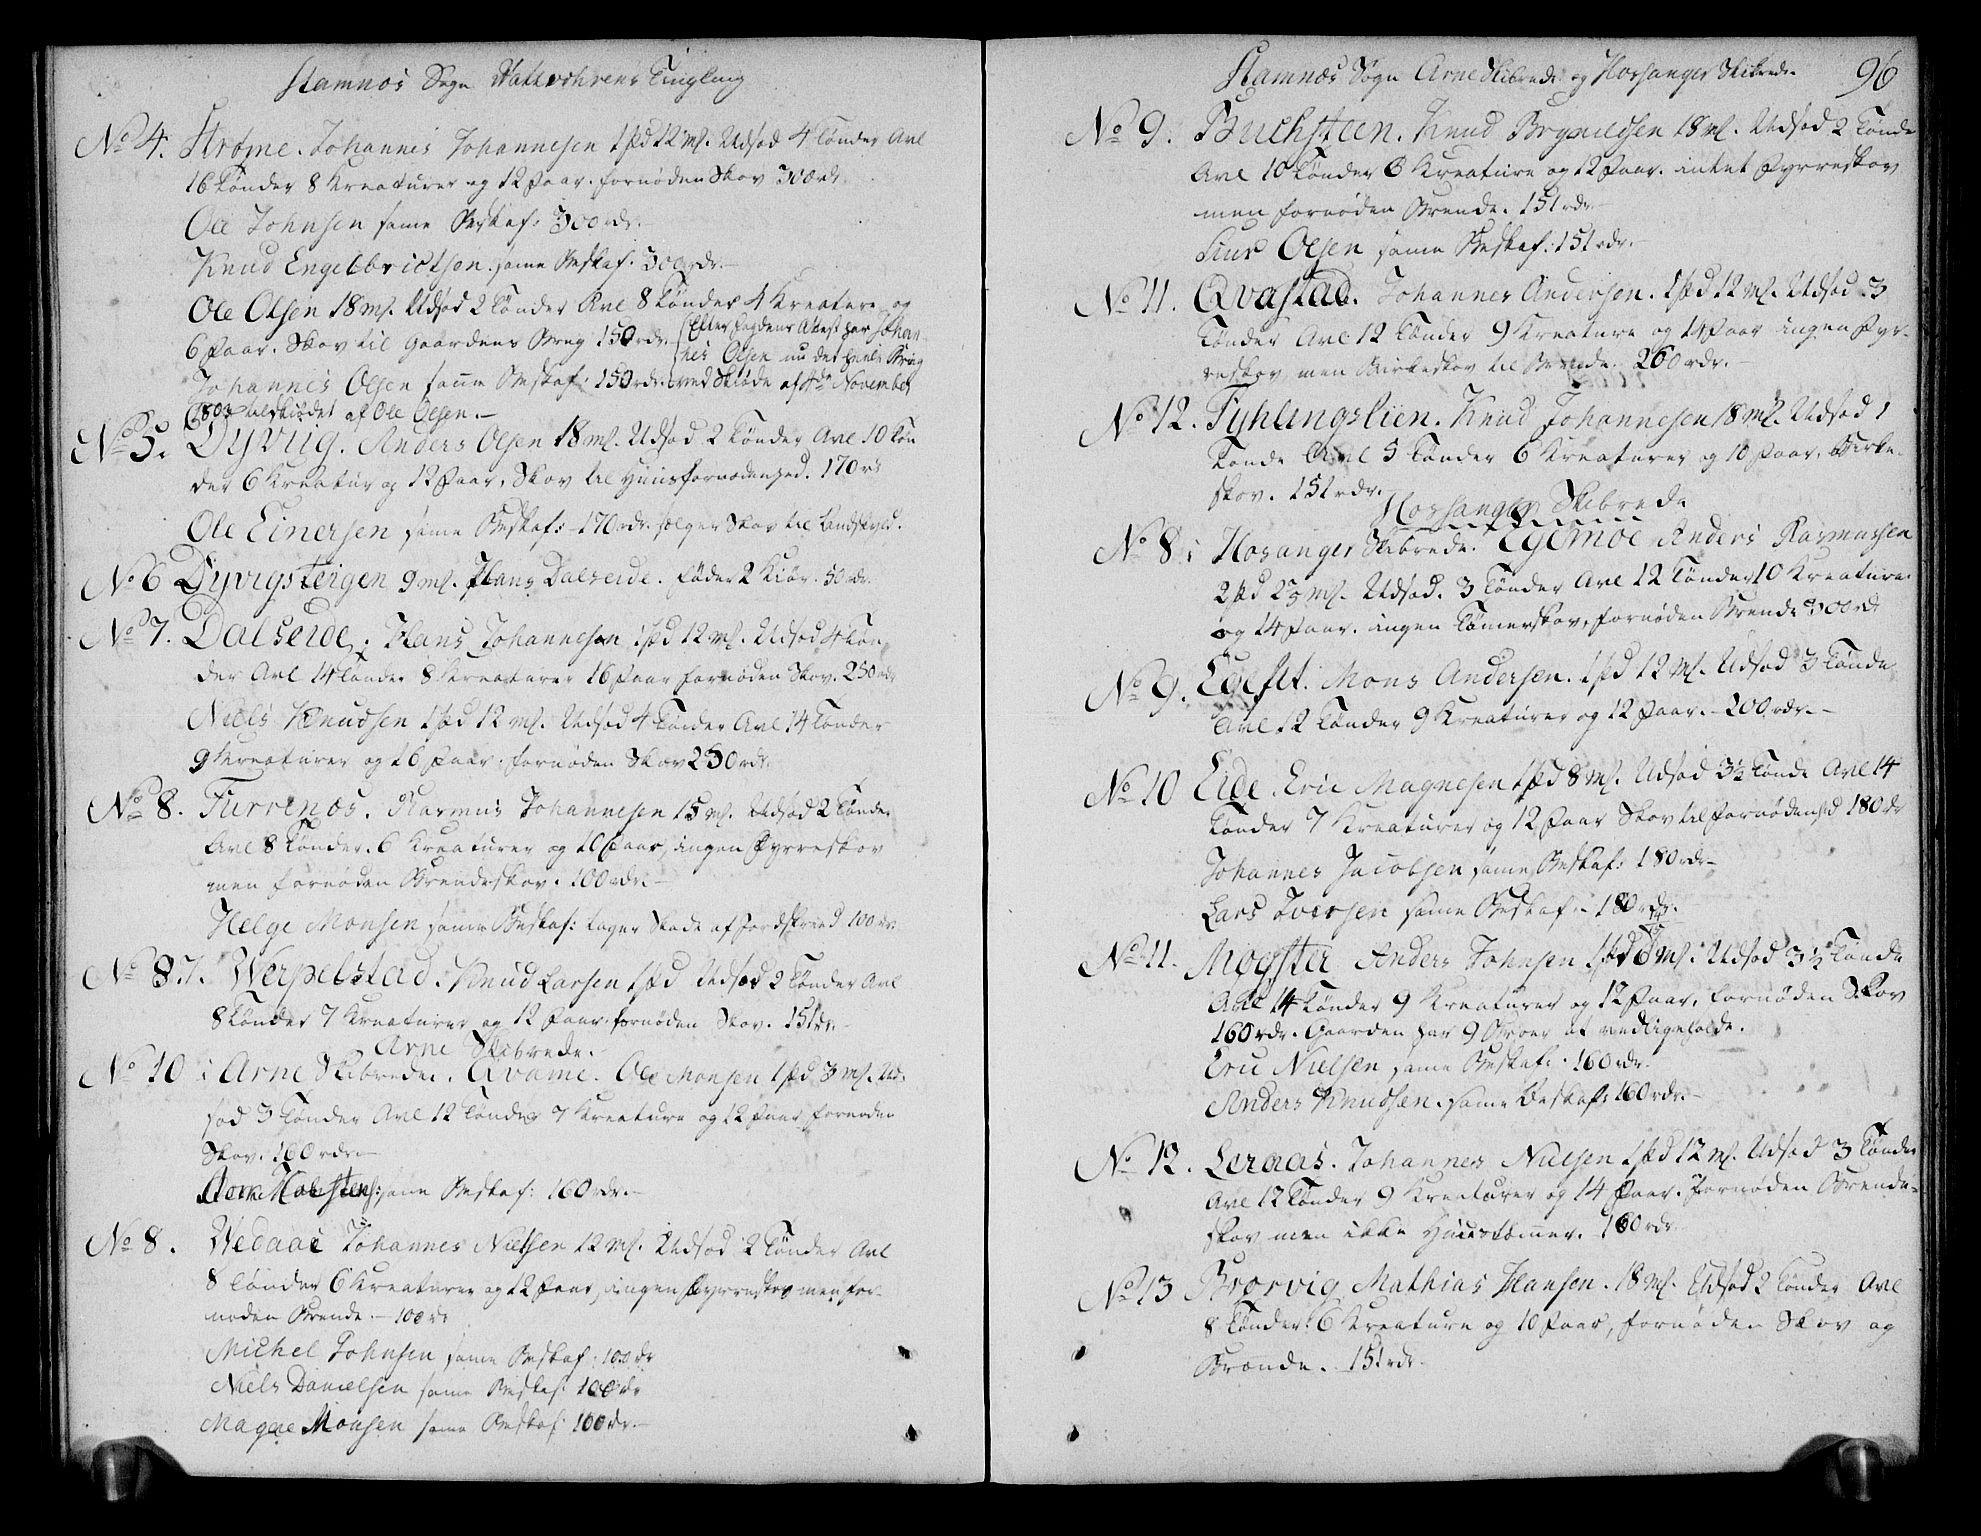 Stamnøs Sogn Hatteøhrens Tinglaug
No 4. Strøme. Johannis Johannesen 1 pd 12 mk. Udsæd 4 Tønder Avl
16 Tønder 8 Kreaturer og 12 Faar. fornøden Skov 300 rdr.
Ole Johnsen same Beskaf: 300 rdr.
Knud Engelbrictsen. same Beskaf: 300 rdr.
Ole Olsen 18 mk. Udsæd 2 Tønder Avl 8 Tønder 4 Kreature og
6 Faar. Skov til Gaardens Brug 150 rdr. (Efter Fogdens Attest har Johan-
nis Olsen nu det heele Brug
Johannes Olsen same Beskaf: 150 rdr. med Skiøde af 4de November
1803 tilskiødet af Ole Olsen.
No 5. Dyvig. Anders Olsen 18 mk. Udsæd 2 Tønder Avl 10 Tøn
der 6 Kreatur og 12 Faar, Skov til Huusfornødenhed. 170 rd
Ole Einersen same Beskaf: 170 rdr. sælger Skov til Landskyld.
No 6 Dyvigsteigen 9 mk. Hans Dalseide. føder 2 Kiør. 50 rdr.
No 7. Dalseide. Hans Johannesen 1 pd 12 mk. Udsæd 4 Tøn
der Avl 14 Tønder 8 Kreaturer 16 Faar fornøden Skov. 250 rdr
Niels Knudsen 1 pd 12 mk. Udsæd 4 Tønder Avl 14 Tønder
9 Kreaturer og 16 Faar. fornøden Skov 250 rdr.
No 8. Furrenøs. Rasmus Johannesen 15 mk. Udsæd 2 Tønder
Avl 8 Tønder. 6 Kreaturer og 10 Faar, ingen Fyrreskov
men fornøden Brendeskov. 100 rdr.
Helge Monsen same Beskaf: tager Skade af Jordskreed 100 rdr.
No 87. Werpelstad. Knud Larsen 1 pd Udsæd 2 Tønder Avl
8 Tønder 7 Kreaturer og 12 Faar. fornøden Skov. 151 rdr.
Arne Skibrede.
No 10 i Arne Skibrede. Qvame. Ole Monsen 1 pd 3 mk. Ud-
sæd 3 Tønder Avl 12 Tønder 7 Kreature og 12 Faar fornøden
Skov. 160 rdr.
same Beskaf: 160 rdr.
No 8. Wedaae Johannes Nielsen 12 mk. Udsæd 2 Tønder Avl
8 Tønder 6 Kreaturer og 12 Faar, ingen Fyrreskov men for-
nøden Brende. 100 rdr
Michel Johnsen same Beskaf: 100 rdr
Niels Danielsen same Beskaf: 100 rdr
Magne Monsen same Beskaf: 100 rdr.
Stamnæs Sogn Arne Skibrede og Hosanger Skibrede 96
No 9. Buchsteen. Knud Brynildsen 18 mk. Udsæd 2 Tønde
Avl 10 Tønder 6 Kreature og 12 Faar. intet Fyrreskov
men fornøden Brende. 151 rdr.
Siur Olsen same Beskaf: 151 rdr.
No 11. Qvastad. Johannes Andersen. 1 pd 12 mk. Udsæd 3
Tønder Avl 12 Tønder 9 Kreature og 14 Faar ingen Fyr-
reskov men Birkeskov til Brende. 260 rdr.
No 12. Fyhlingslien. Knud Johannesen 18 mk. Udsæd 1
Tønde Avl 5 Tønder 6 Kreaturer og 10 Faar, Birke-
skov. 151 rdr.
Hosanger Skibrede
No 8 i Hosanger Skibrede. Egemoe Anders Rasmussen
2 pd 23 mk. Udsæd. 3 Tønder Avl 12 Tønder 10 Kreature
og 14 Faar. ingen Tømerskov, fornøden Brende 300 rd
No 9. Mons Andersen. 1 pd 12 mk. Udsæd 3 Tønde
Avl 12 Tønder 9 Kreaturer og 12 Faar. 200 rdr.
No 10 Eide. Eric Magnesen 1 pd 8 mk. Udsæd 3½ Tønde Avl 14
Tønder 7 Kreaturer og 12 Faar Skov til fornødenhed 180 rdr
Johannes Jacobsen same Beskaf: 180 rdr.
Lars Iversen same Beskaf: 180 rdr.
No 11. Møgster Anders Johnsen 1 pd 6 mk. Udsæd 3½ Tønde
Avl 14 Tønder 9 Kreaturer og 12 Faar, fornøden Skov
160 rdr. Gaarden har 9 Broer at vedligeholde.
Eric Nielsen same Beskaf: 160 rdr.
Anders Knudsen. same Beskaf: 160 rdr.
No 12. Leraas. Johannes Nielsen 1 pd 12 mk. Udsæd 3 Tønder
Avl 12 Tønder 9 Kreaturer og 14 Faar. fornøden Brende-
skov men ikke Huustømmer. 160 rdr.
No 13 Brorvig Mathias Hansen. 18 mk. Udsæd 2 Tønder Avl
8 Tønder. 6 Kreature og 10 Faar, fornøden Skov og
Brende. 151 rdr.